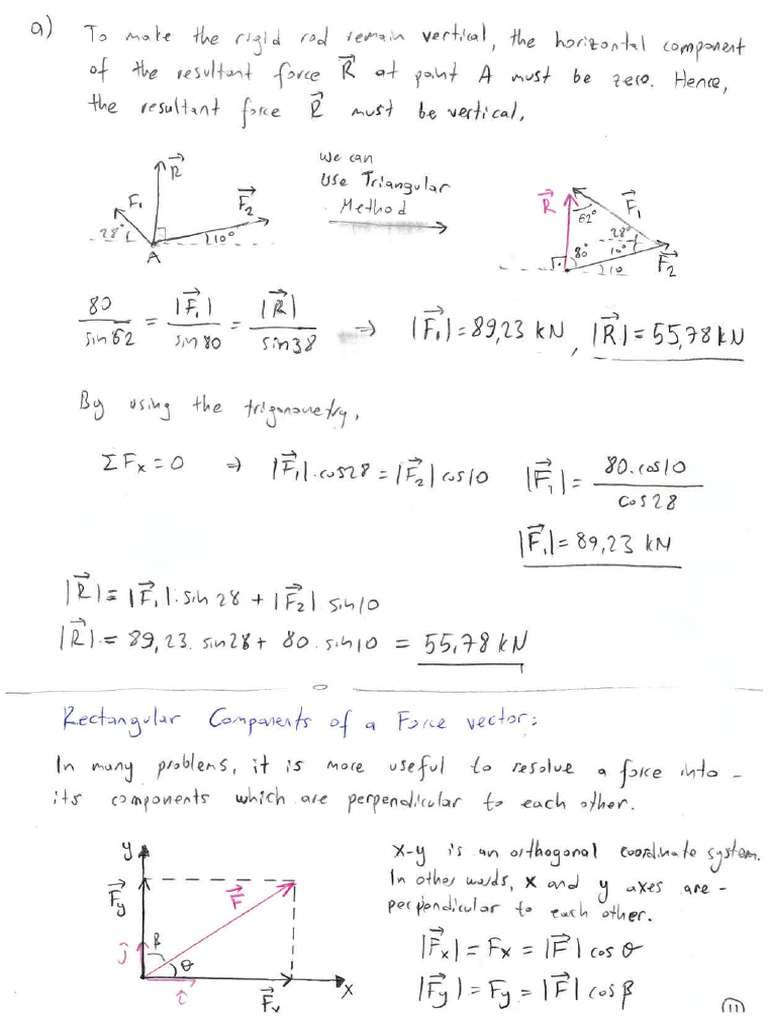 a) To make the rigid rod remain vertical, the horizontal component
of the resultant force R⃗ at point A must be zero. Hence,
the resultant force R⃗ must be vertical,
R⃗
F₁
F⃗₂
28°
10°
A
We can
Use Triangular
Method
R⃗
F⃗₁
62°
28°
10°
80°
F⃗₂
10
80/sin62 = |F⃗₁|/sin80 = |R⃗|/sin38 ⇒ |F⃗₁| = 89,23 kN, |R⃗| = 55,78 kN
By using the trigonometry,
ΣFx = 0 ⇒ |F⃗₁|.cos28 = |F⃗₂| cos10 |F⃗₁| = 80.cos10/cos28
|F⃗₁| = 89,23 kN
|R⃗| = |F⃗₁|.sin28 + |F⃗₂| sin10
|R⃗| = 89,23. sin28 + 80. sin10 = 55,78 kN
Rectangular Components of a Force vector:
In many problems, it is more useful to resolve a force into -
its components which are perpendicular to each other.
y
F⃗y
F⃗
j
β
θ
i
F⃗x
x
x-y is an orthogonal coordinate system.
In other words, x and y axes are -
perpendicular to each other.
|F⃗x| = Fx = |F⃗| cos θ
|F⃗y| = Fy = |F⃗| cos β
11